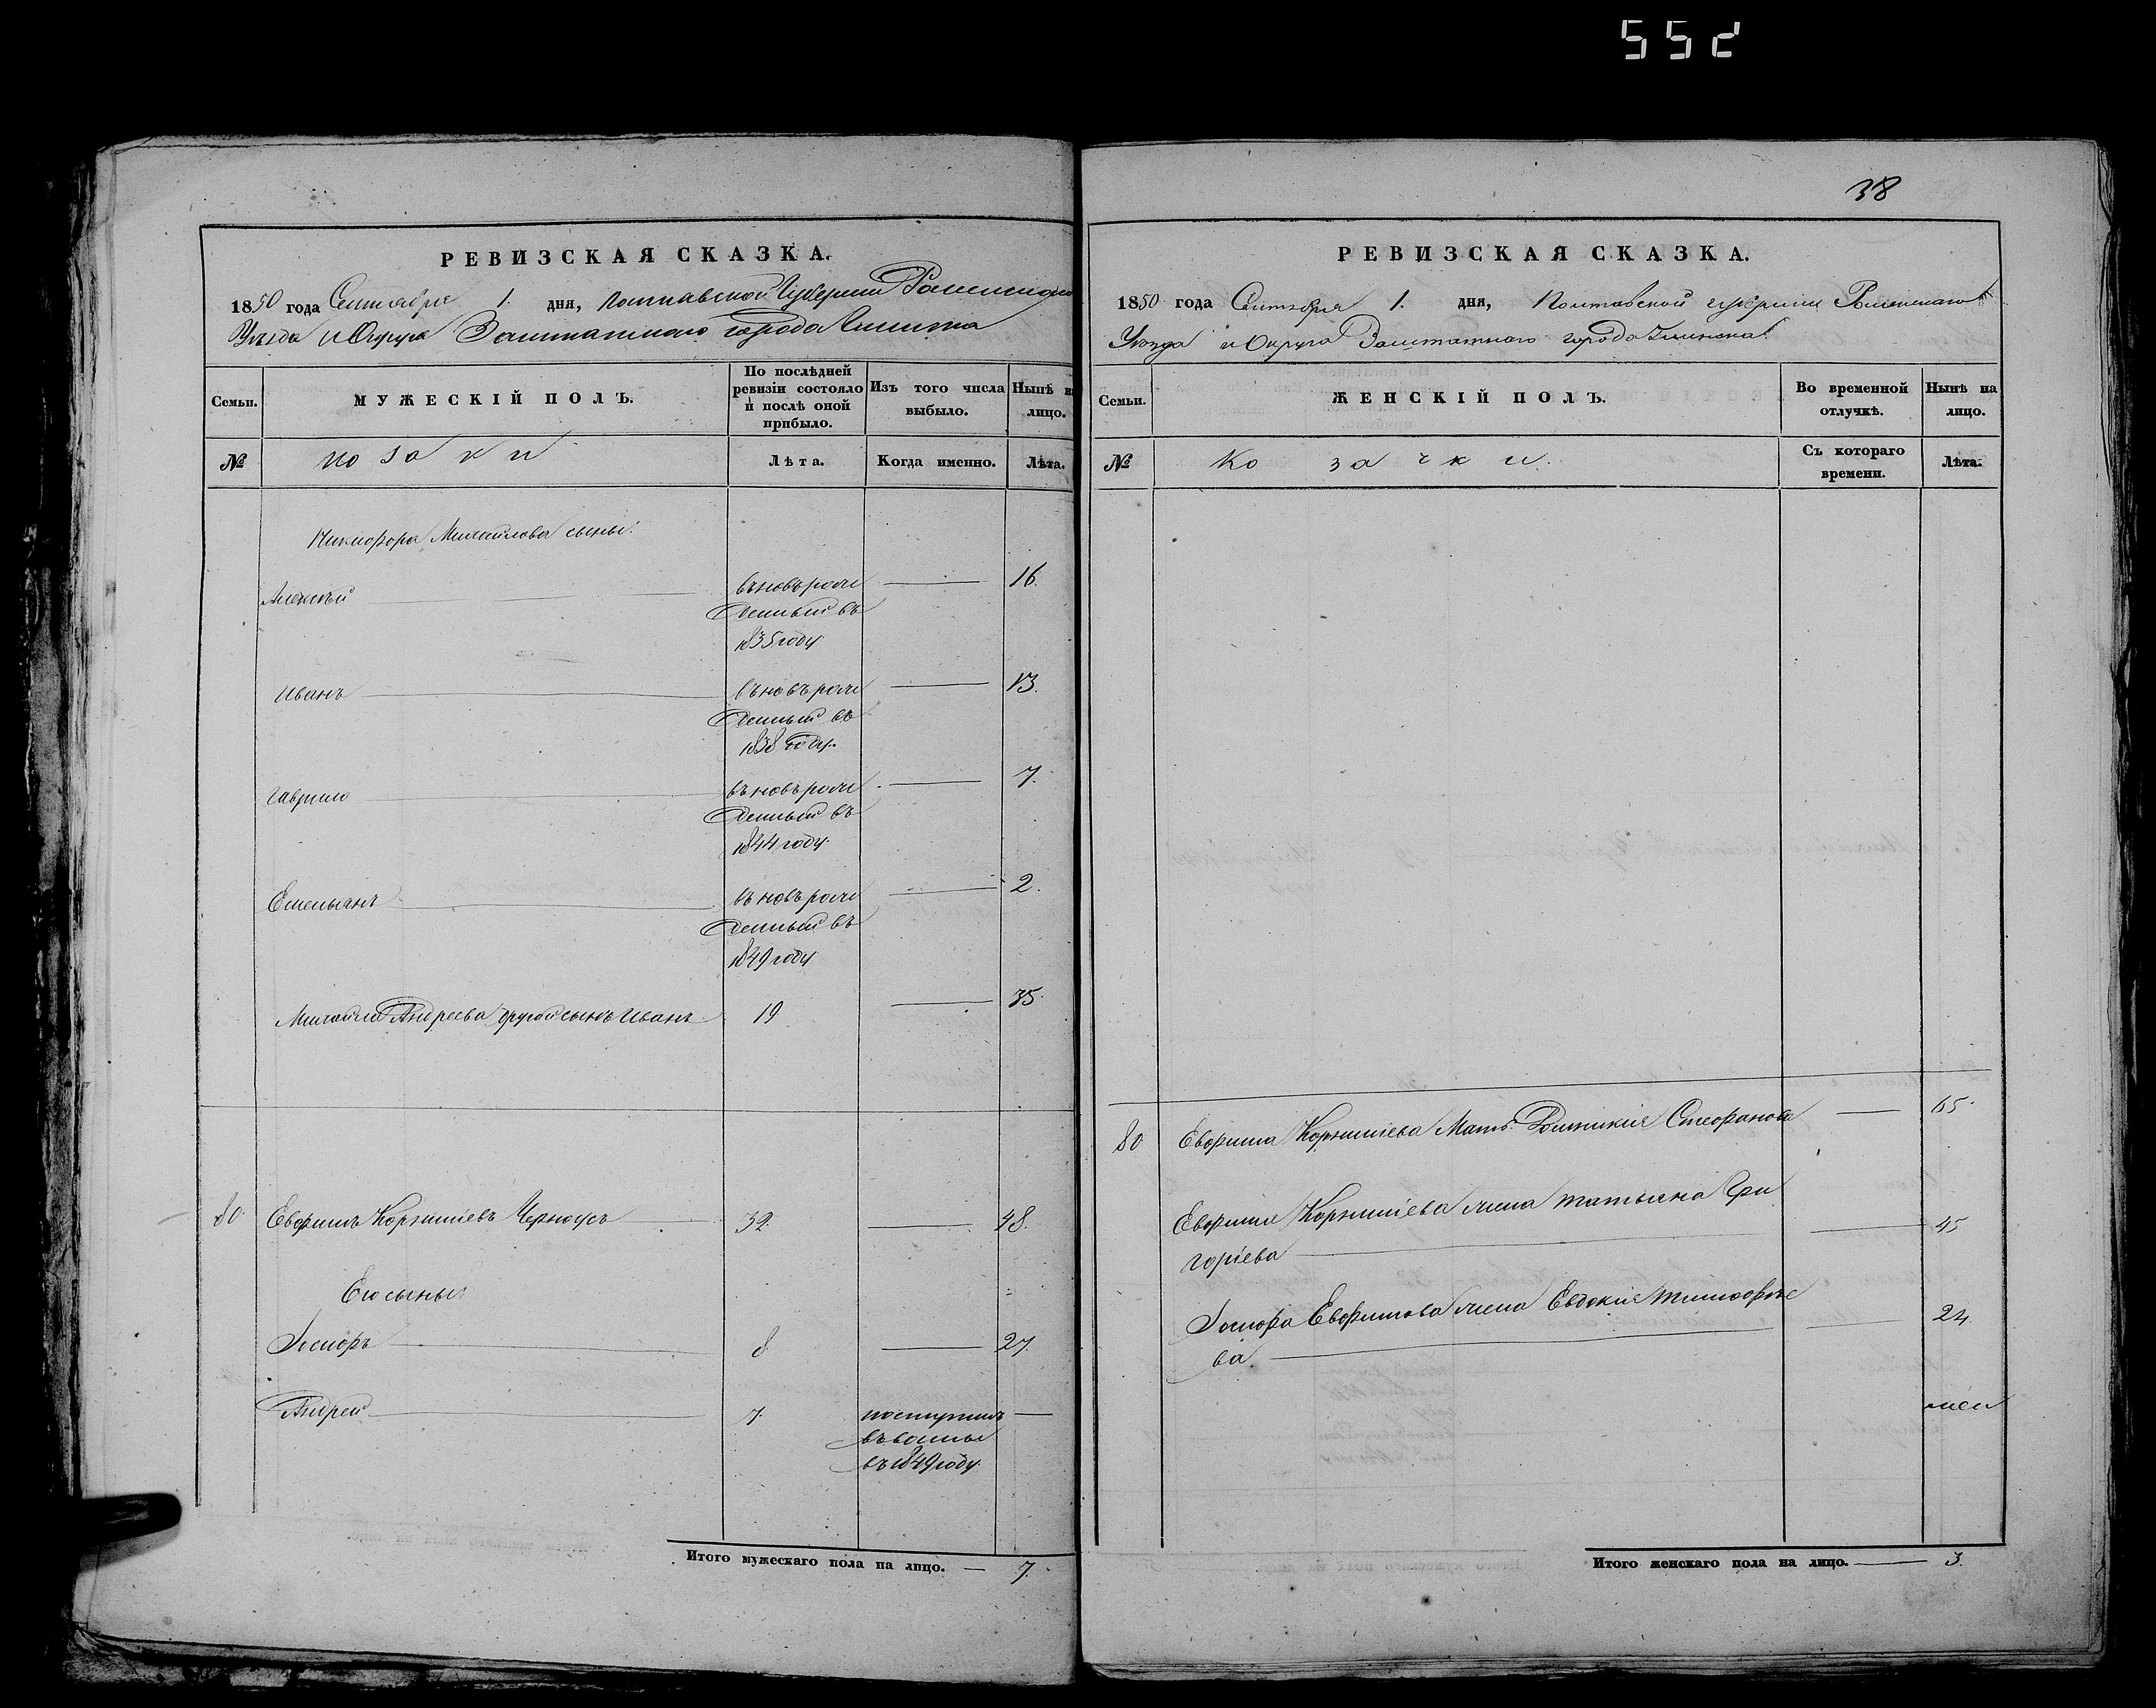 552
РЕВИЗСКАЯ СКАЗКА.
1850 года Сентября 1. дня, Полтавской Губернии Роменскаго
Уезда и Округа Заштатнаго города Глинска
Семьи.
МУЖЕСКІЙ ПОЛЪ.
По послѣдней ревизіи состояло и послѣ оной прибыло.
Изъ того числа выбыло.
Нынѣ на лицо.
№
Козаки
Лѣта.
Когда именно.
Лѣта.
Никифора Михайлова сыны:
Алексѣй въновърож 16.
денный въ
1835 году
Иванъ въновърож 13.
денный въ
1838 году.
Гаврило въновърож 7.
денный въ
1844 году.
Емельянъ въновърож 2.
денный въ
1849 году
Михайла Андреева другой сынъ Иванъ 19 35.
80. Евфимъ Корниліевъ Черноусъ 32. 48.
Его сыны:
8 27.
Андрей 7. поступилъ
въ
въ 1849 году.
Итого мужескаго пола на лицо. — 7.
38
РЕВИЗСКАЯ СКАЗКА.
1850 года Сентября 1. дня, Полтавской губерніи Роменскаго
Уезда и Округа Заштатнаго города Глинска
Семьи.
ЖЕНСКІЙ ПОЛЪ.
Во временной отлучкѣ.
Нынѣ на лицо.
№
Козачки.
Съ котораго времени.
Лѣта.
80 Евфима Корниліева Мать Стефанова 65.
Евфима Корниліева жена Татьяна Гри
горіева 45
Евфимова жена Евдокія
ва. 24
Итого женскаго пола на лицо. — 3.